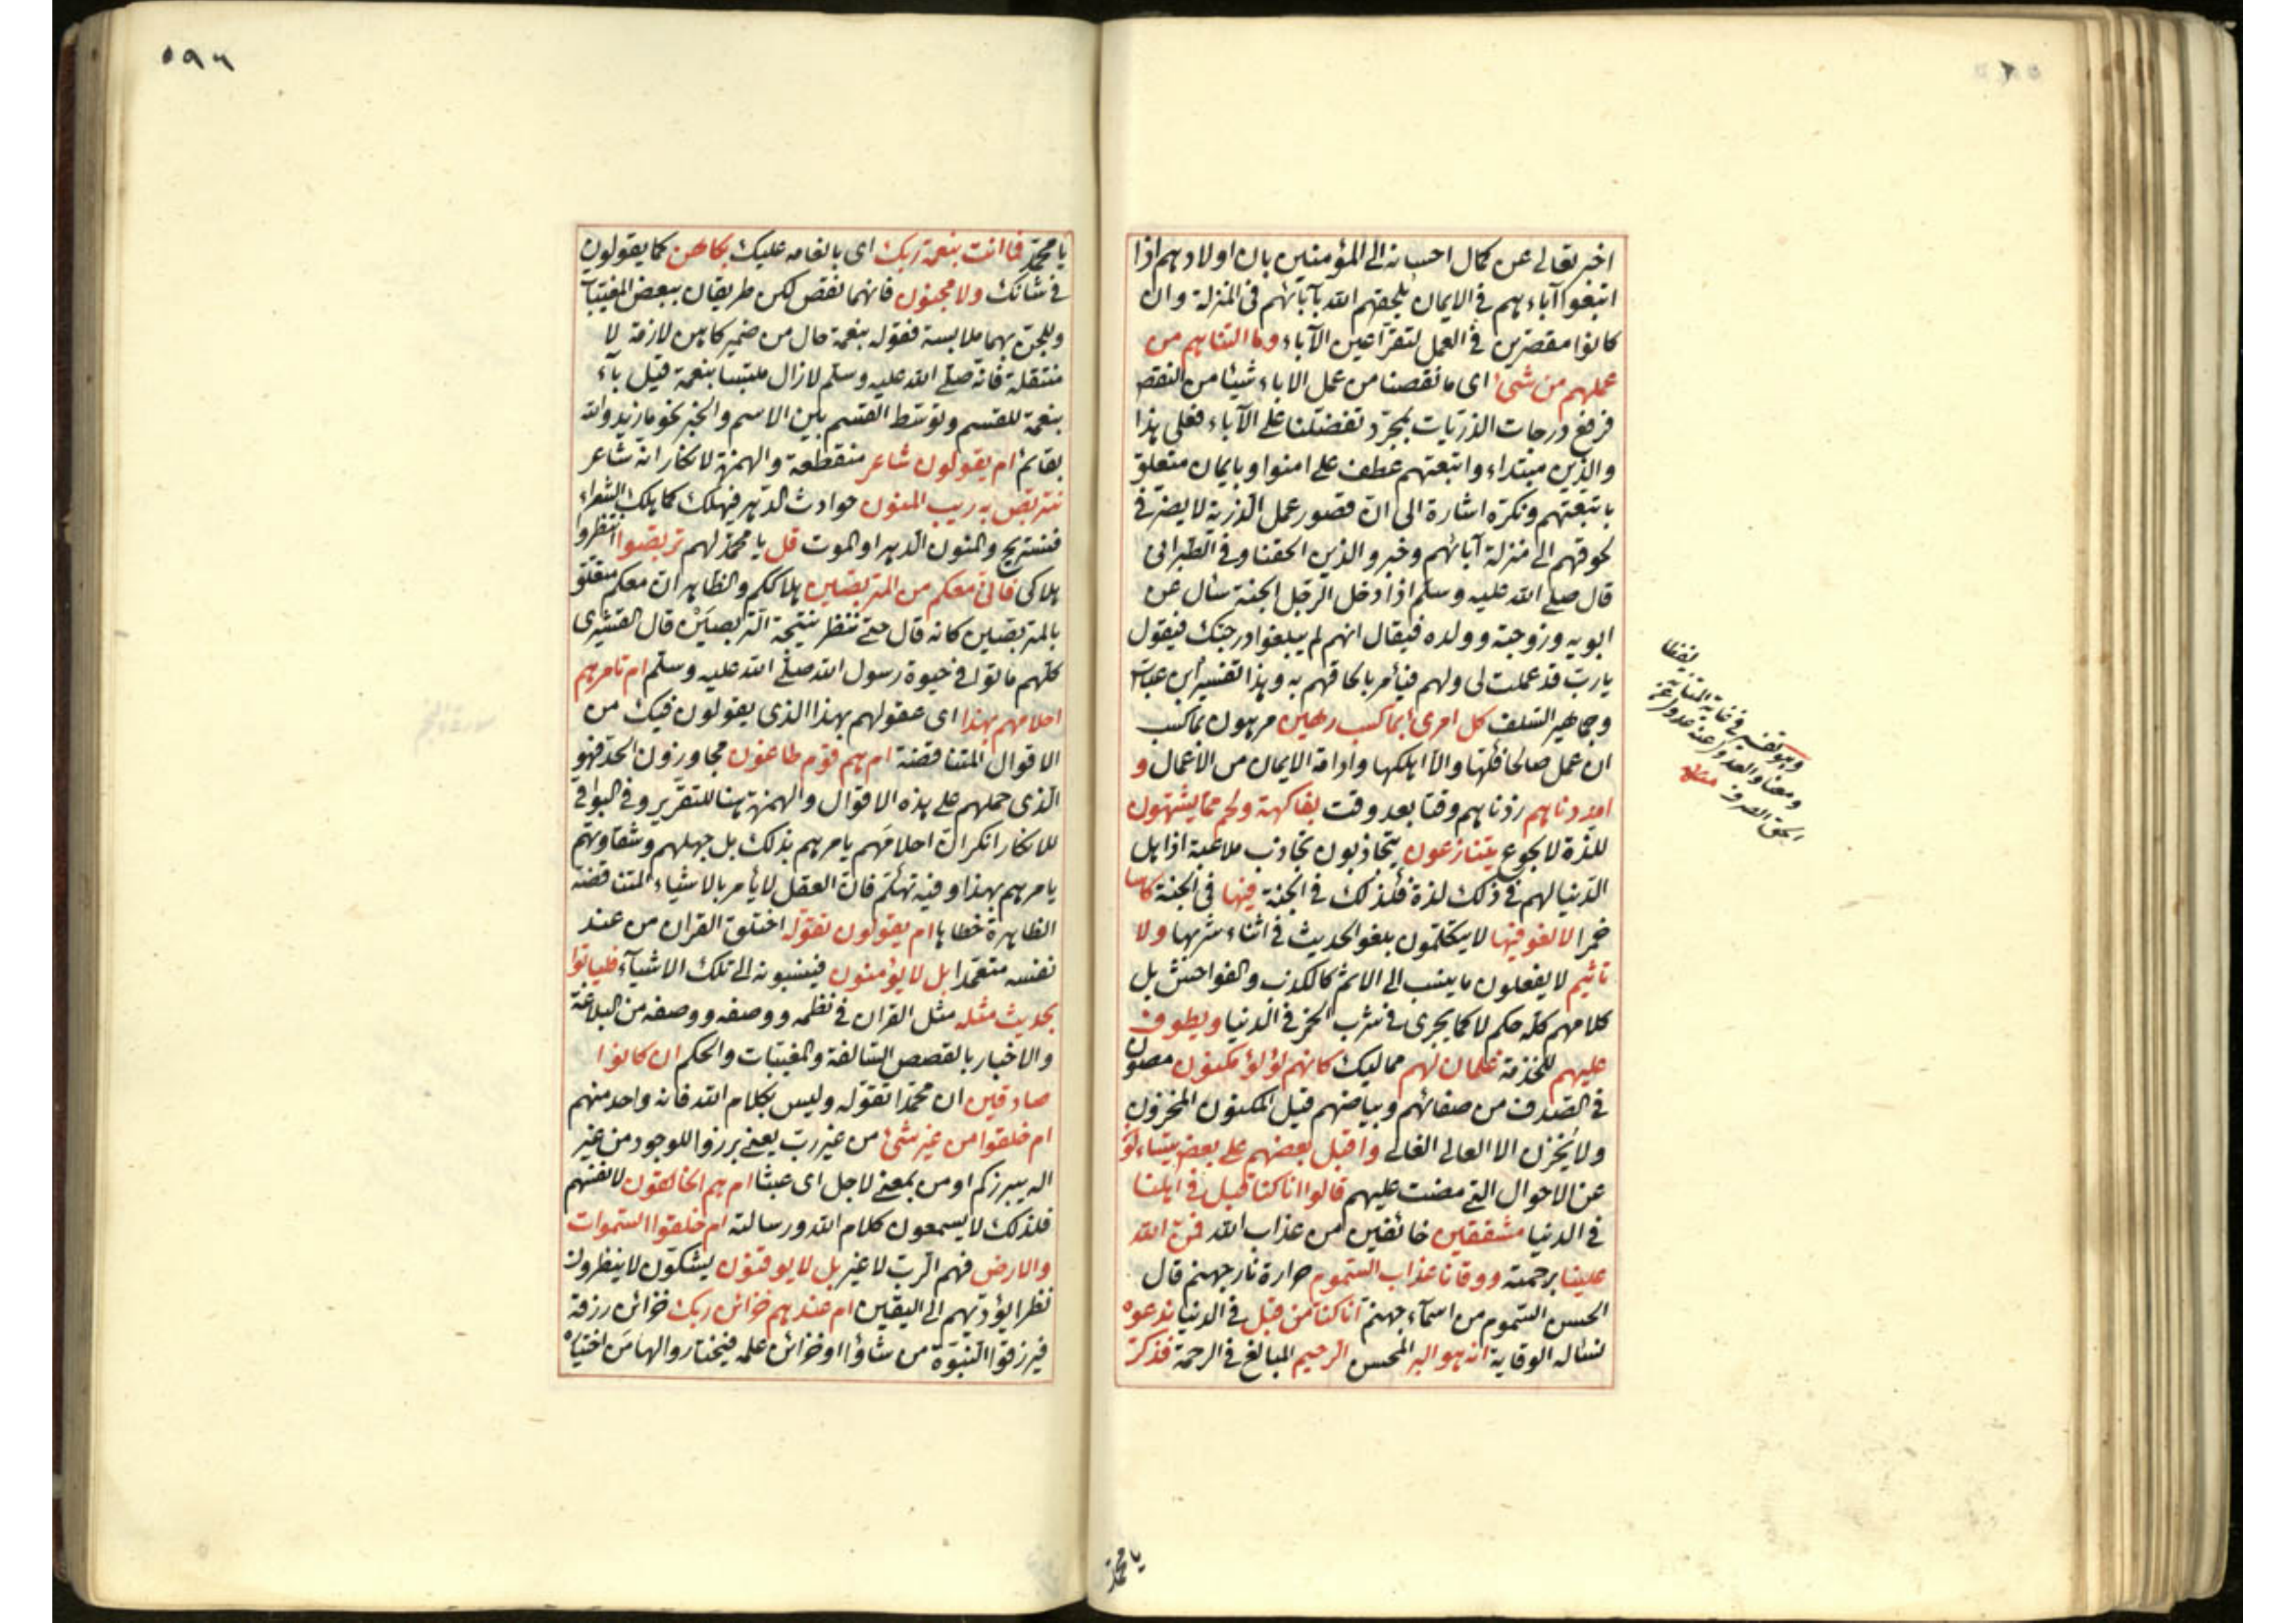 اخبر تعالى عن كمال احسانه الى المؤمنين بان اولادهم اذا
اتبغوا آباءهم فى الايمان يلحقهم الله بآبائهم فى المنزلة وان
كانوا مقصرين فى العمل لتقر اعين الآباء وما التناهم من
عملهم من شئ اى ما نقصنا من عمل الاباء شيئا من النقص
فرفع درجات الذريات بمجرد تفضلنا على الآباء فعلى هذا
والذين مبتداء واتبعتهم عطف على امنوا وبايمان متعلق
باتبعتهم ونكره اشارة الى ان قصور عمل الذرية لا يضر فى
لحوقهم الى منزلة آبائهم وخبر والذين الحقنا وفى الطبرانى
قال صلى الله عليه وسلم اذا دخل الرجل الجنة سأل عن
ابويه وزوجته وولده فيقال انهم لم يبلغوا درجتك فيقول
يا رب قد عملت لى ولهم فيأمر بالحاقهم به وهذا تفسير ابن عباس
وجماهير السلف كل امرئ بما كسب رهين مرهون بما كسب
ان عمل صالحا فكها والا اهلكها وادامة الايمان من الاعمال و
امددناهم زدناهم وقتا بعد وقت بفاكهة ولحم مما يشتهون
للذة لا لجوع يتنازعون يتجاذبون تجاذب ملاعبة اذ اهل
الدنيا لهم فى ذلك لذة فكذلك فى الجنة فيها فى الجنة كاسا
خمرا لا لغو فيها لا يتكلمون بلغو الحديث فى اثناء شربها ولا
تاثيم لا يفعلون ما ينسب الى الاثم كالكذب والفواحش بل
كلامهم كله حكم لا كما يجرى فى شرب الخمر فى الدنيا ويطوف
عليهم للخدمة غلمان لهم مماليك كانهم لؤلؤ مكنون مصون
فى الصدف من صفائهم وبياضهم قيل المكنون المخزون
ولا يخزن الا العالى الغالى واقبل بعضهم على بعض يتساءلون
عن الاحوال التى مضت عليهم قالوا انا كنا قبل فى اهلنا
فى الدنيا مشفقين خائفين من عذاب الله فمن الله
علينا برحمته ووقانا عذاب السموم حرارة نار جهنم قال
الحسن السموم من اسماء جهنم انا كنا من قبل فى الدنيا ندعوه
نسأله الوقاية انه هو البر المحسن الرحيم المبالغ فى الرحمة فذكر
يا محمد
٥٩٦
يا محمد فما انت بنعمة ربك اى بانعامه عليك بكاهن كما يقولون
فى شانك ولا مجنون فانهما نقص لكن طريقان ببعض المغيبات
وللجن بهما ملابسة فقوله بنعمة حال من ضمير كاهن لازمة لا
منتقلة فانه صلى الله عليه وسلم لا زال ملتبسا بنعمة قيل باء
بنعمة للقسم وتوسط القسم بين الاسم والخبر نحو ما زيد والله
بقائم ام يقولون شاعر منقطعة والهمزة لانكار انه شاعر
نتربص به ريب المنون حوادث الدهر فيهلك كما يهلك الشعراء
فنستريح والمنون الدهر او الموت قل يا محمد لهم تربصوا انتظروا
هلاكى فانى معكم من المتربصين هلاككم والظاهر ان معكم متعلق
بالمتربصين كانه قال حتى ننتظر نتيجة التربصين قال القشيرى
كلهم ماتوا فى حيوة رسول الله صلى الله عليه وسلم ام تامرهم
احلامهم بهذا اى عقولهم بهذا الذى يقولون فيك من
الاقوال المتناقضة ام هم قوم طاغون مجاوزون الحد فهو
الذى حملهم على هذه الاقوال والهمزة هنا للتقرير وفى البواقى
للانكار انكر ان احلامهم يامرهم بذلك بل جهلهم وشقاوتهم
يامرهم بهذا وفيه تهكم فان العقل لا يأمر بالاشياء المتناقضة
الظاهرة خطاها ام يقولون تقوله اختلق القران من عند
نفسه متعمدا بل لا يؤمنون فينسبونه الى تلك الاشياء فلياتوا
بحديث مثله مثل القران فى نظمه ووصفه ووصفه من البلاغة
والاخبار بالقصص السالفة والمغيبات والحكم ان كانوا
صادقين ان محمدا تقوله وليس بكلام الله فانه واحد منهم
ام خلقوا من غير شئ من غير رب يعنى برزوا للوجود من غير
اله يبرزكم او من بمعنى لاجل اى عبثا ام هم الخالقون لانفسهم
فلذلك لا يسمعون كلام الله ورسالته ام خلقوا السموات
والارض فهم الرب لا غير بل لا يوقنون يشكون لا ينظرون
نظرا يؤديهم الى اليقين ام عندهم خزائن ربك خزائن رزقه
فيرزقوا النبوة من شاؤا او خزائن علمه فيختاروا لها من اختياره